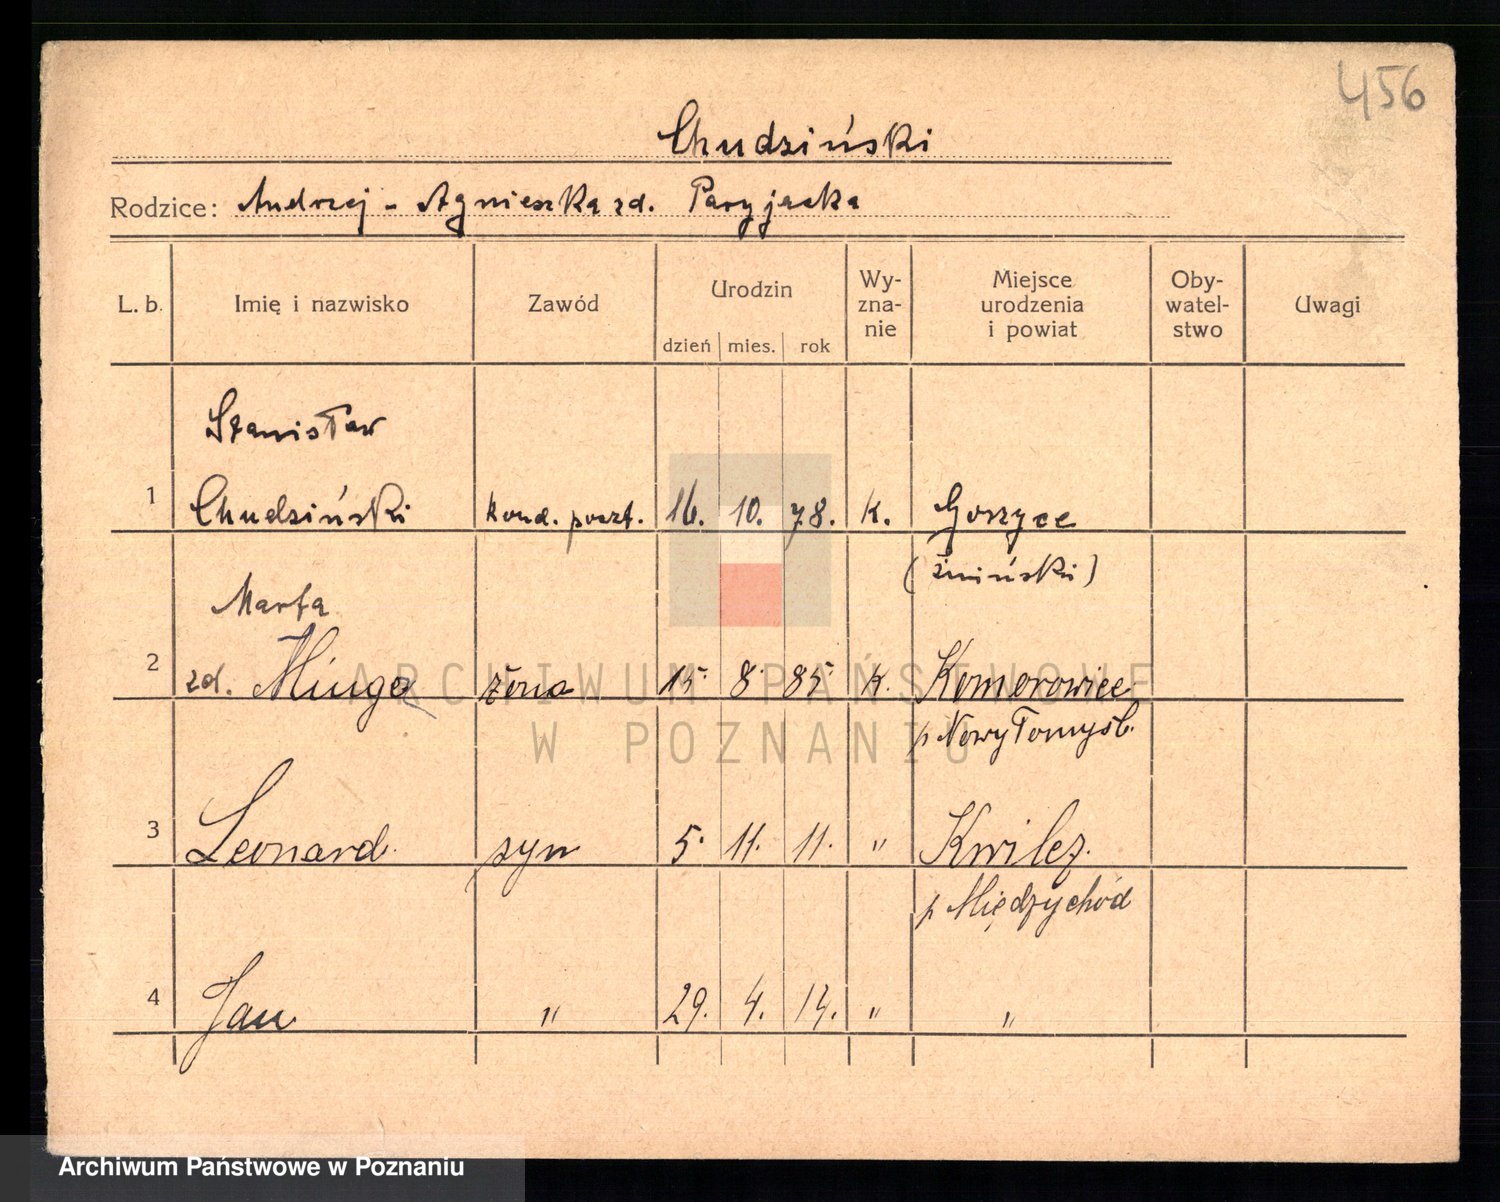 456
Chudziński
Rodzice: Andrzej - Agnieszka zd. Paryjacka
L. b. Imię i nazwisko Zawód Urodzin dzień mies. rok Wy-zna-nie Miejsce urodzenia i powiat Oby-watel-stwo Uwagi
Stanisław
1 Chudziński kond. poczt. 16. 10. 78. k. Gorzyce
(żniński)
Marta
2 zd. Minga żona 15. 8. 85. k. Komorowice
p Nowy Tomyśl.
3 Leonard. syn 5. 11. 11. " Kwilcz.
p Międzychód
4 Jan " 29. 4. 14. " "
ARCHIWUM PAŃSTWOWE
W POZNANIU
Archiwum Państwowe w Poznaniu